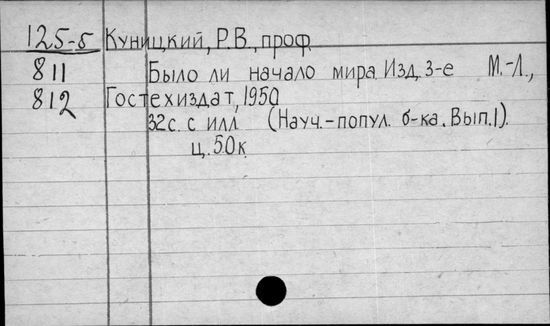 125-5 Куницкий, Р.В., проф.
811 Было ли начало мира. Изд. 3-е М.-Л.,
812 Гостехиздат, 1950
32с. с илл (Науч.-попул. б-ка. Вып.1).
ц. 50к